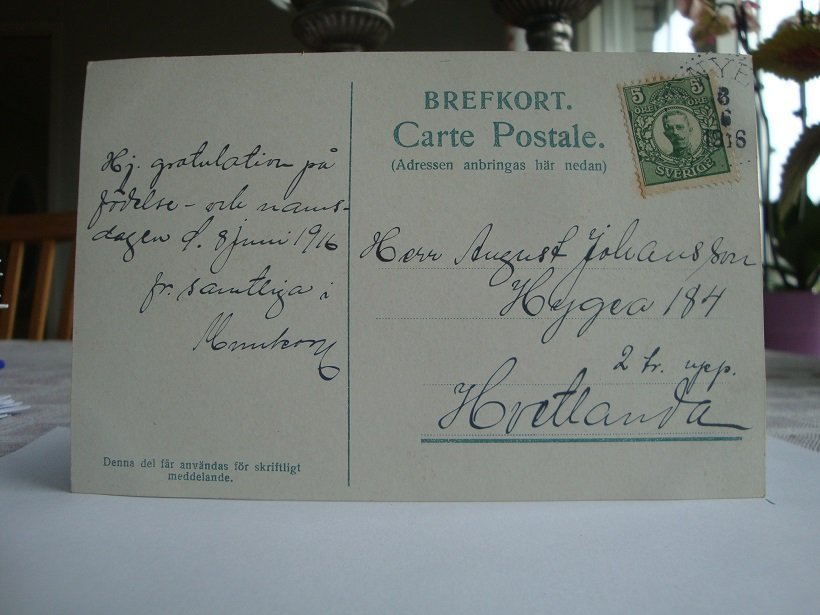 Hj. gratulation på
födelse- och namns-
dagen d. 8 juni 1916
fr. samtliga i
Denna del får användas för skriftligt
meddelande.
BREFKORT.
Carte Postale.
(Adressen anbringas här nedan)
5 5
ÖRE ÖRE
SVERIGE
NYE
8
6
1916
Herr August Johansson
Hygea 184
2 tr. upp.
Hvetlanda